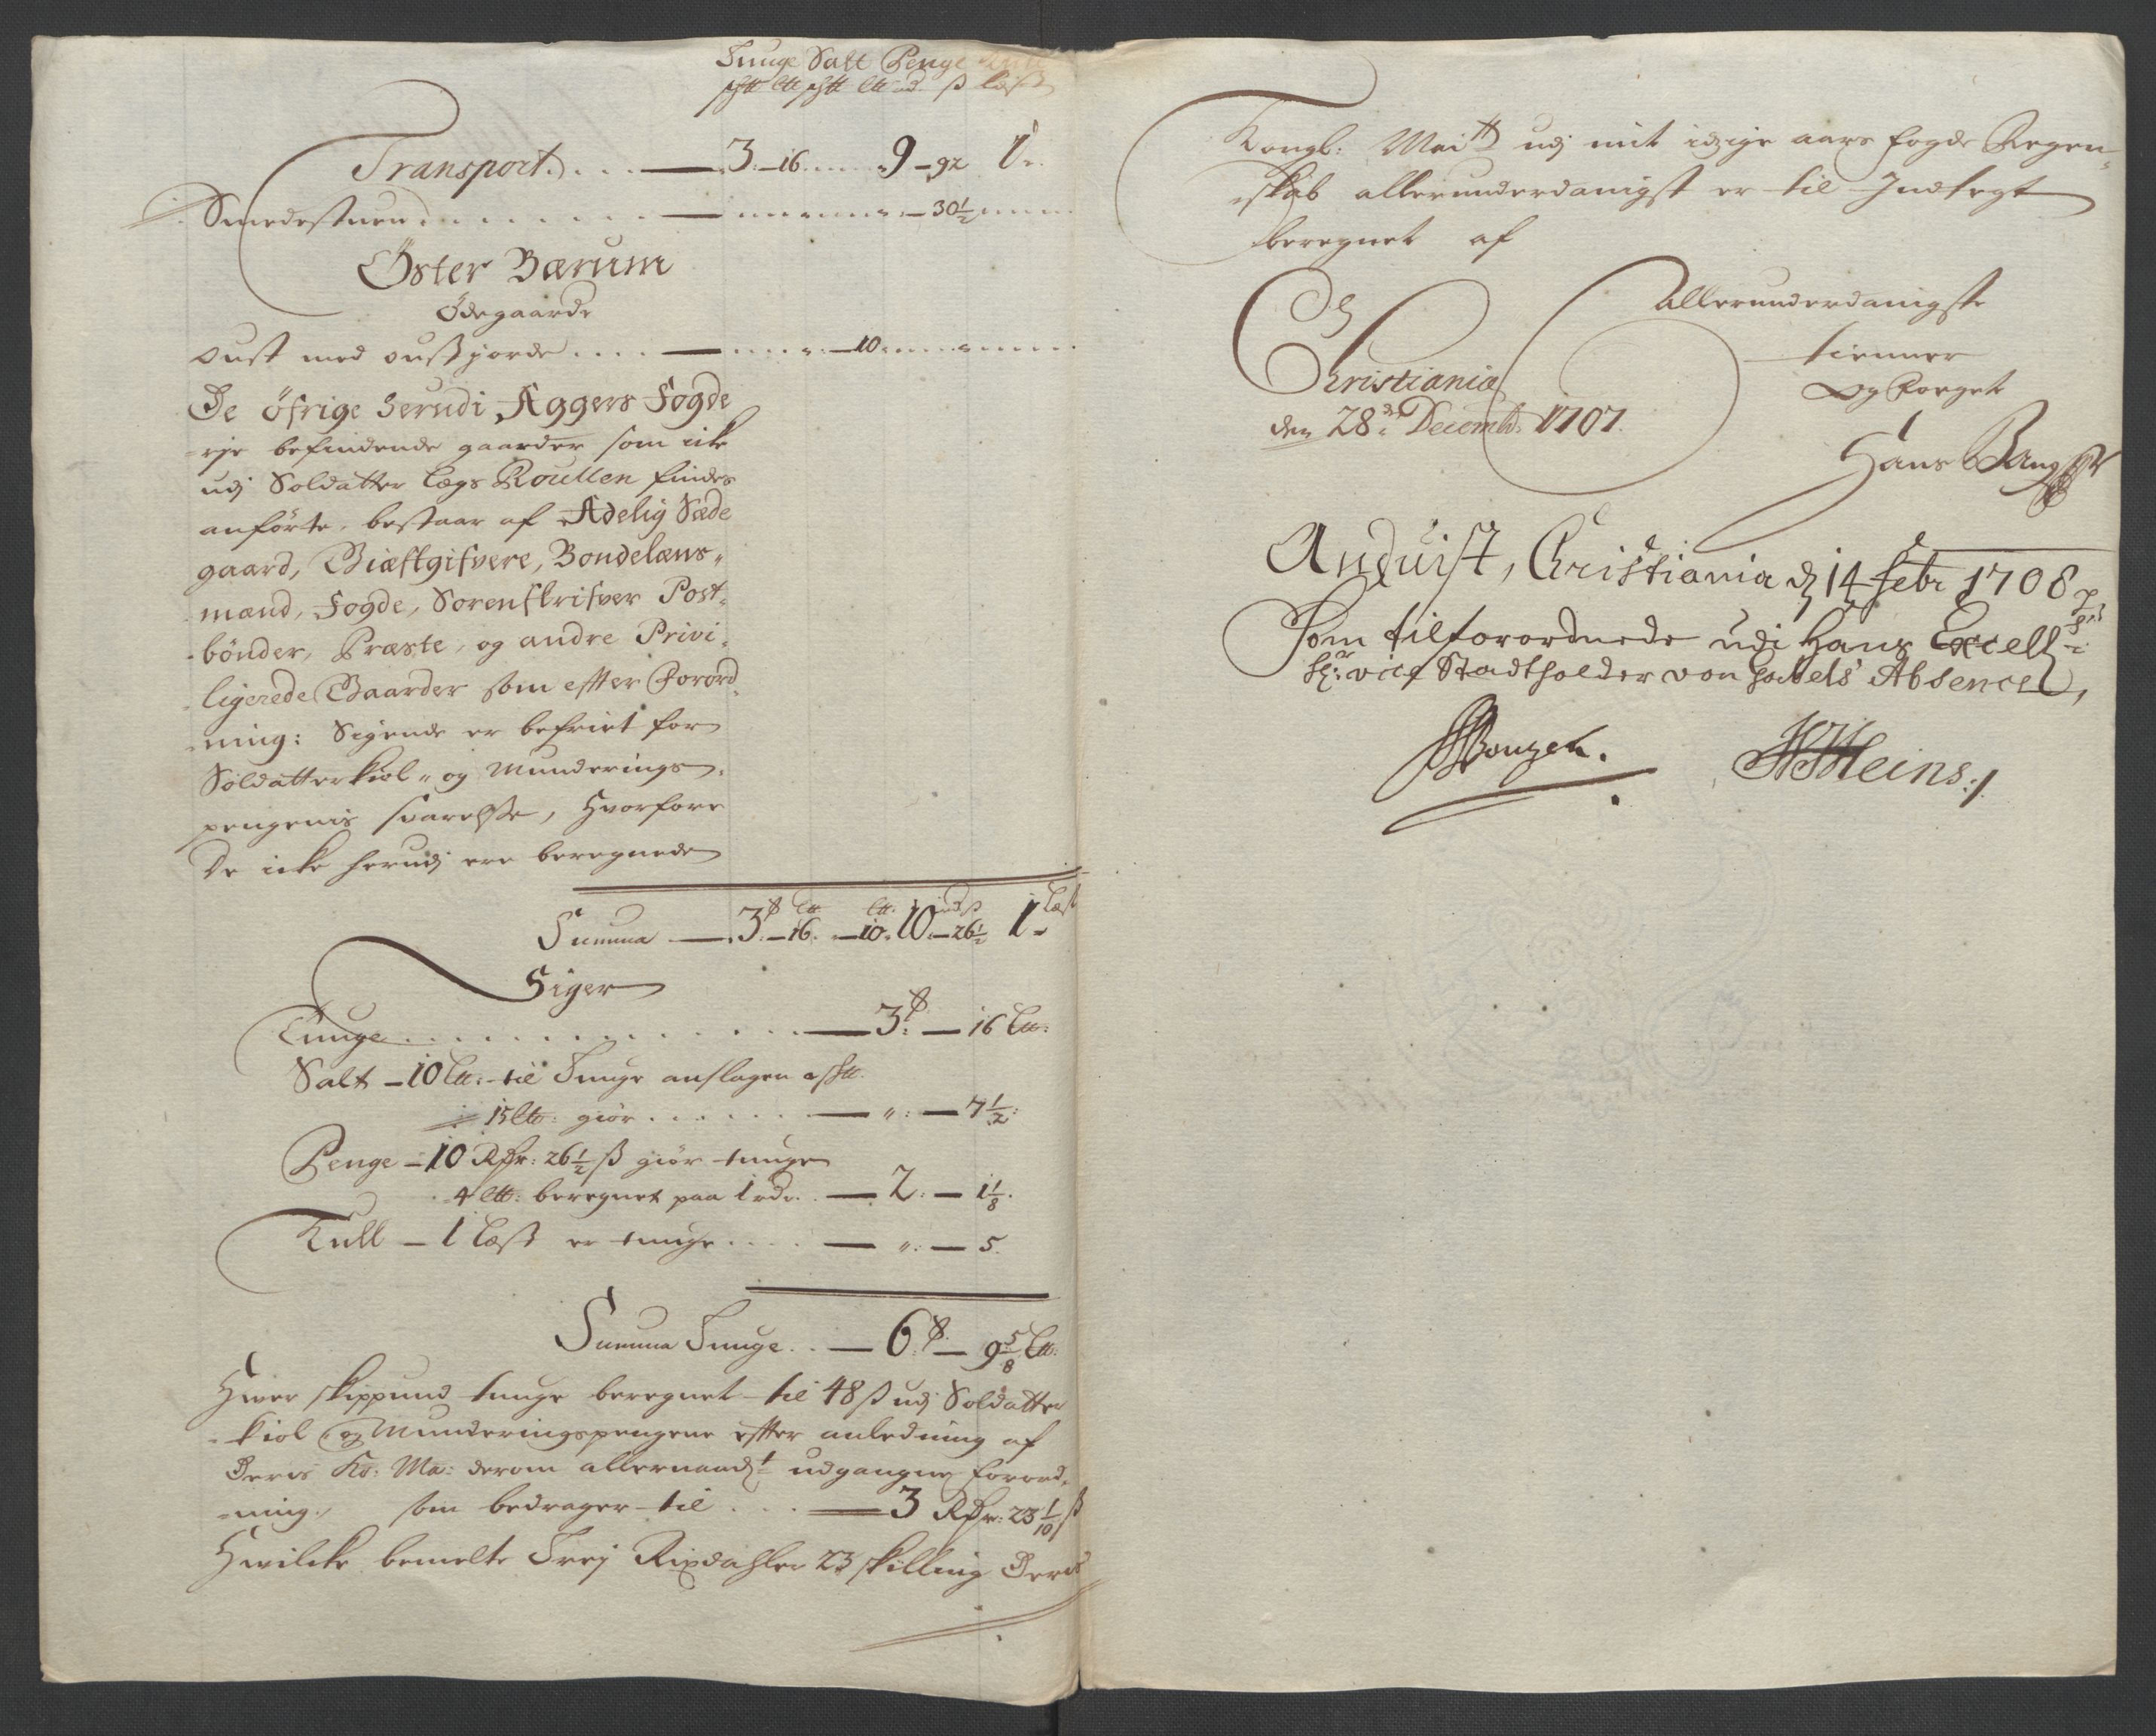 Tunge Salt Penge Kull
Transport. . . . — 3 : — 16 . . . . 9 — 92 1
Smedestuen . . . . . . . — . . . . — 30½
Øster Bærum
Ødegaarde
Oust med oustjorde . . . . — . . . . — 10 . . . .
De öfrige herudi Aggers Fogde
rje befindende gaarder som icke
udj Soldatter Lægs Roullen findes
anförte, bestaar af Adelig Sæde
gaard, Giæstgifvere, Bondelæns„
mænd, Fogde, Sorenskrifver Post„
bönder, Præste, og andre Privi„
ligerede Gaarder som efter Forord„
ning: Sigende er befriet for
Soldatterkiol„ og Munderings„
pengenis svarelse, Hvorfore
De icke herudj ere beregnede
Summa — 3 : — 16 . — 10 . 10 : — 26½ 1
Siger
Tunge . . . . . . . . . . — 3 : — 16 Ltt:
Salt — 10 Ltt: til Tunge anslagen a
15 Ltt: giör . . . . . . — „ : — 7½ :
Penge — 10 Rdr: 26½ ß giör tunge
4 Ltt: beregnet paa 1 rdr. . — 2 : — 1⅛ .
Kull — 1 Læst er tunge . . . . — „ : — 5 .
Summa Tunge . . — 6 : — 9⅝ Ltt:
Hver skippund tunge beregnet til 48 ß udj Soldatter
kiol og Munderingspengene efter anledning af
Deris Ko: Ma: derom allernaadt udgangne forord„
ning, som bedrager til . . . — 3 Rdr: 23 1/10 ß
Hvilcke bemelte Trej Rixdahler 23 skilling Deris
Kongl: Maitt udj mit idzige aars fogde Regen„
skab allerunderdanigst er til Indtegt
beregnet af
Christiania
den 28de Decembr: 1707.
Allerunderdanigste
tienner
Og Forget
Hans Bang
Anduist, Christiania d 14 Febr 1708
Som tilforordnede udi Hans Excell:
Hr: vice Stadtholder von Habels Absence,
HHeins./.